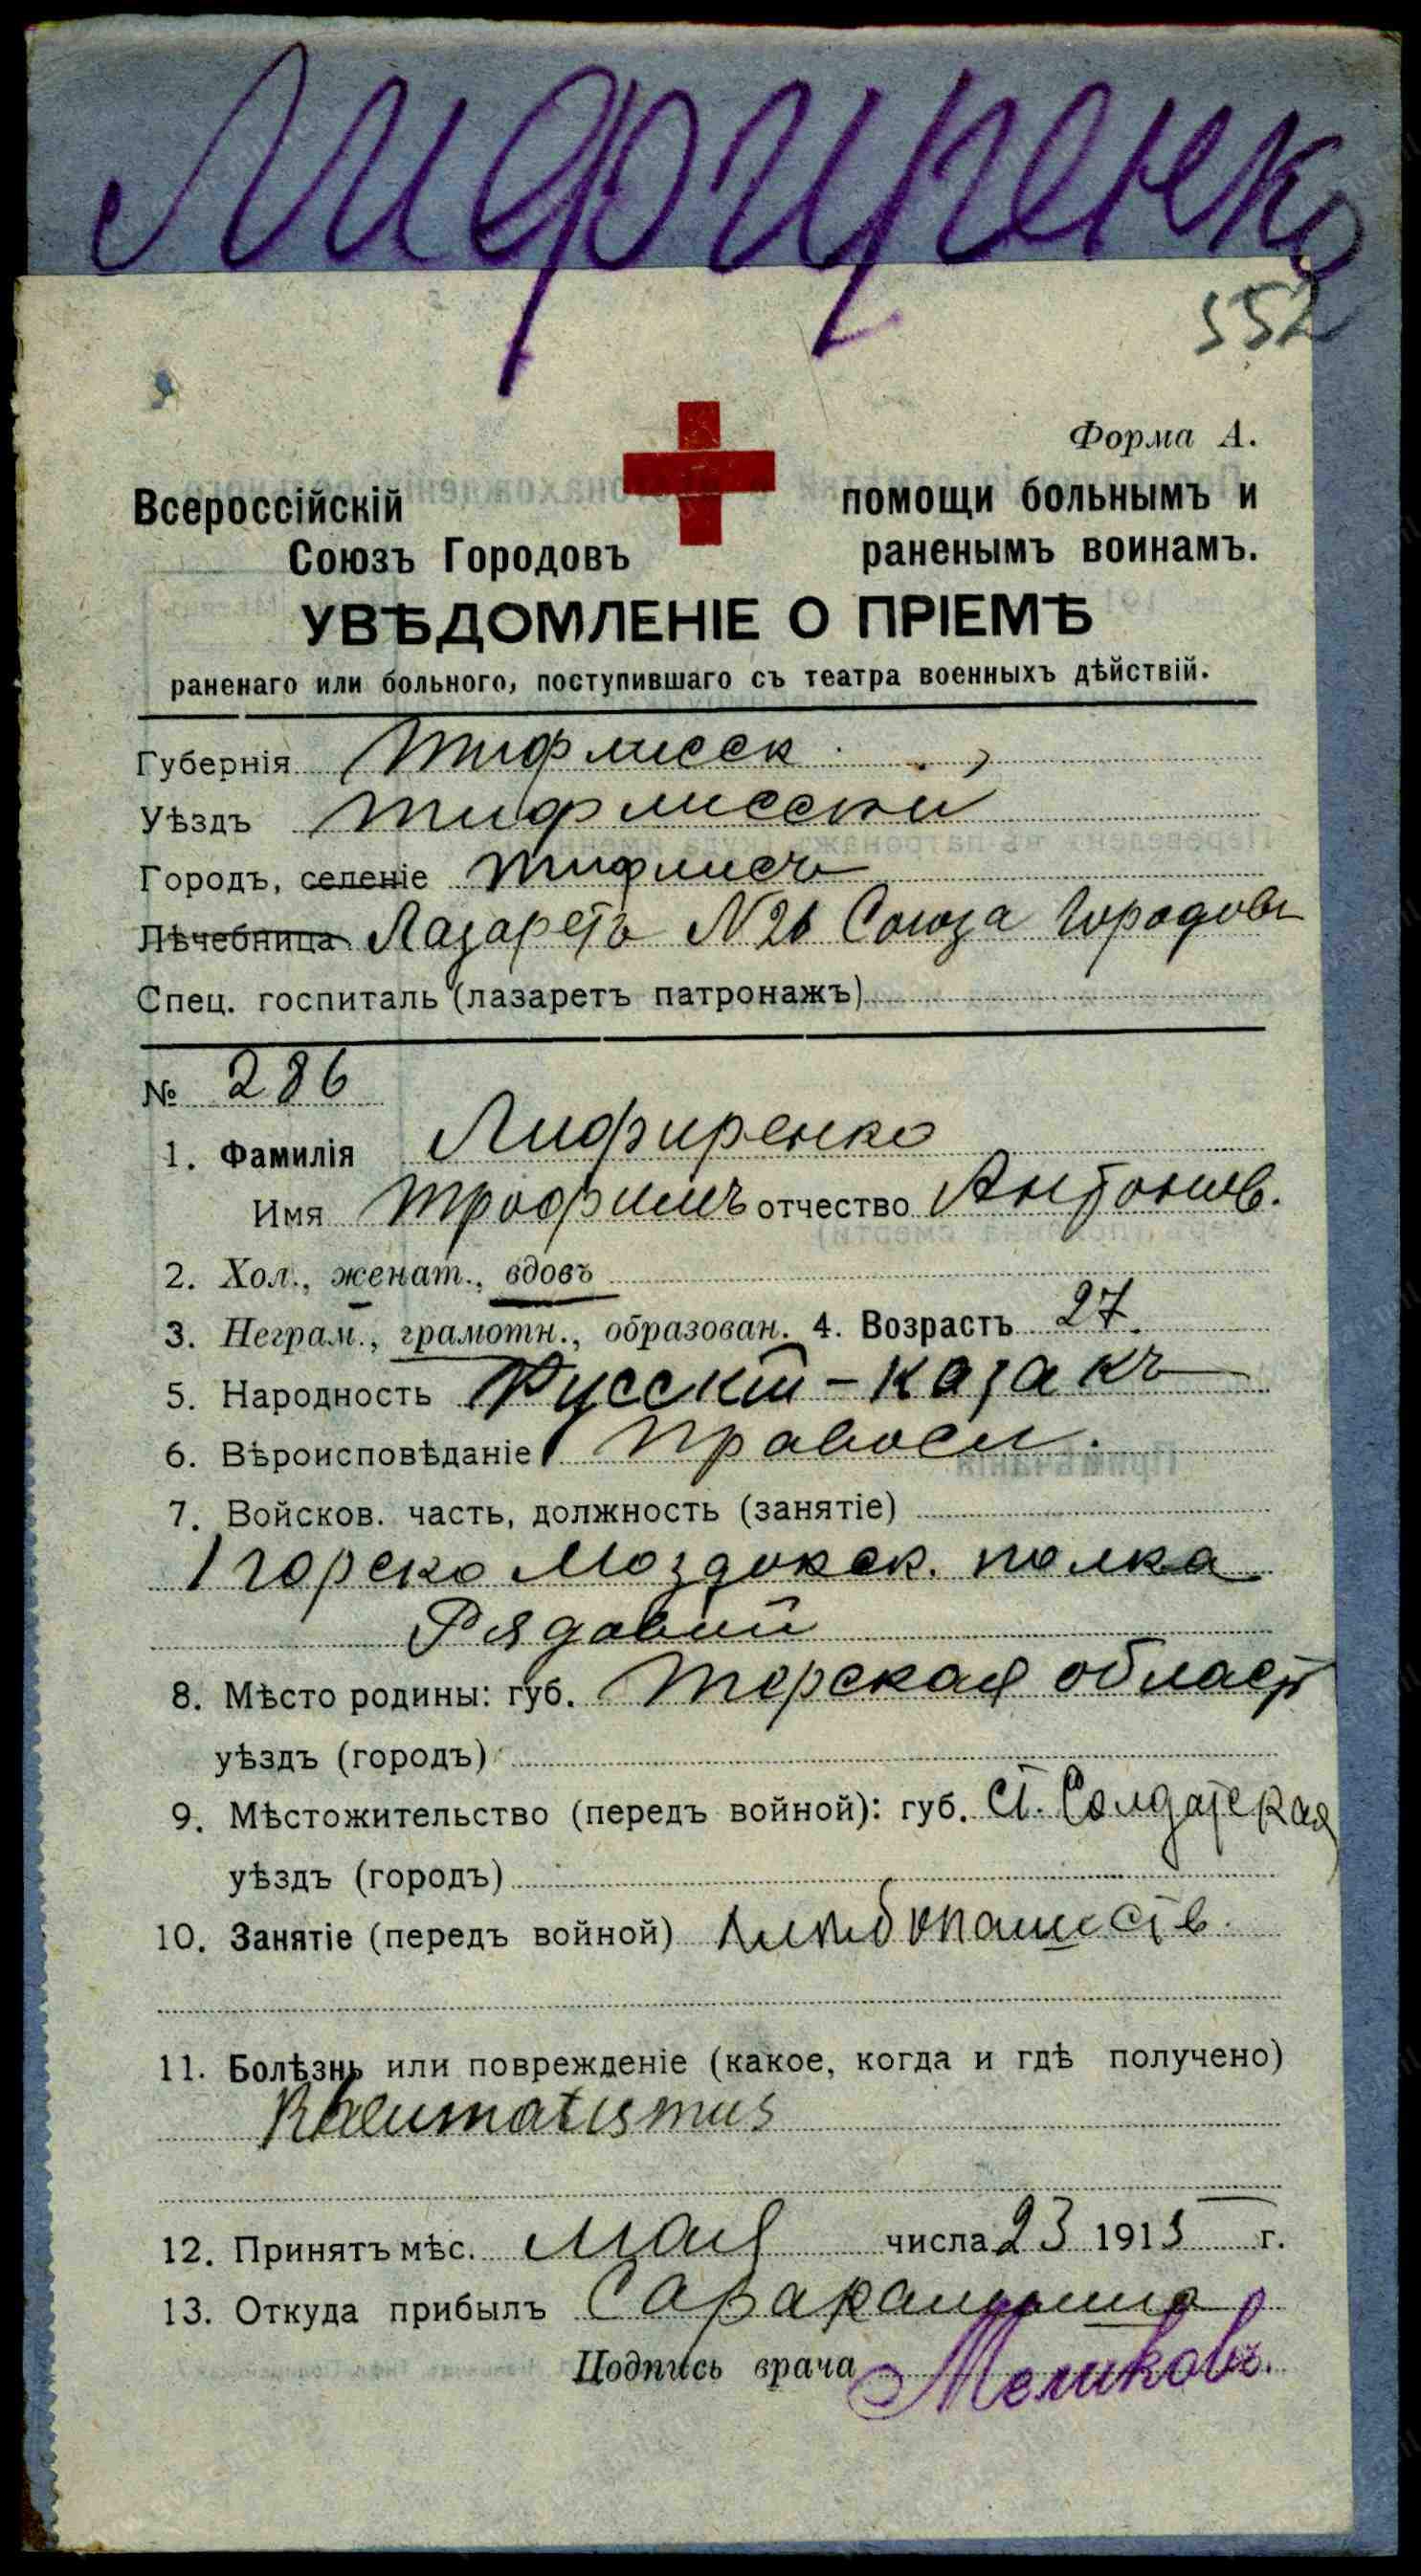 Лифиренко
552
Форма А.
Всероссійскій
Союзъ Городовъ
помощи больнымъ и
раненымъ воинамъ.
УВѢДОМЛЕНІЕ О ПРІЕМѢ
раненаго или больного, поступившаго съ театра военныхъ дѣйствій.
Губернія Тифлисск.
Уѣздъ Тифлисскій
Городъ, селеніе Тифлисъ
Лѣчебница Лазаретъ №26 Союза Городовъ
Спец. госпиталь (лазаретъ патронажъ)
№ 286
1. Фамилія Лифиренко
Имя Трофимъ отчество Антонов.
2. Хол., женат., вдовъ
3. Неграм., грамотн., образован. 4. Возрастъ 27.
5. Народность Русскій-казакъ
6. Вѣроисповѣданіе Правосл.
7. Войсков. часть, должность (занятіе)
1 горско Моздокск. полка
Рядовый
8. Мѣсто родины: губ. Терская област
уѣздъ (городъ)
9. Мѣстожительство (передъ войной): губ. ст. Солдатская
уѣздъ (городъ)
10. Занятіе (передъ войной) хлѣбопашеств.
11. Болѣзнь или поврежденіе (какое, когда и гдѣ получено)
Rheumatismus
12. Принятъ мѣс. мая числа 23 1915 г.
13. Откуда прибылъ
Подпись врача Меликовъ.